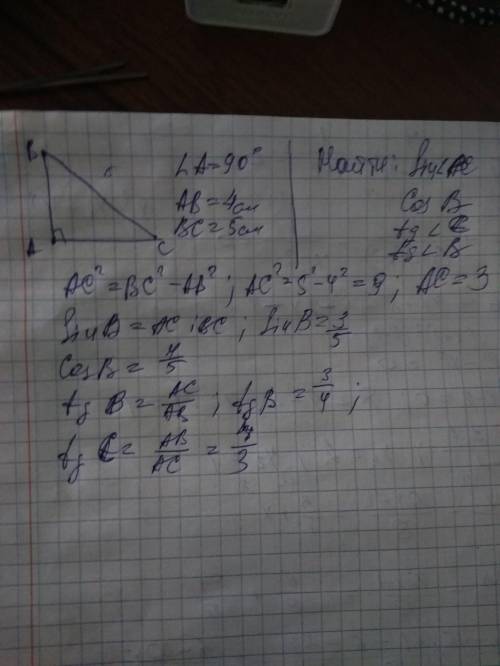 B
∠A=90°
AB=4см
BC=5см
A
C
Найти:
Cos B
tg∠C
tg∠B
AC²=BC²-AB²; AC²=5²-4²=9; AC=3
Sin B=AC:BC; Sin B=3/5
Cos B=4/5
tg B=AC/AB; tg B=3/4;
tg C=AB/AC=4/3